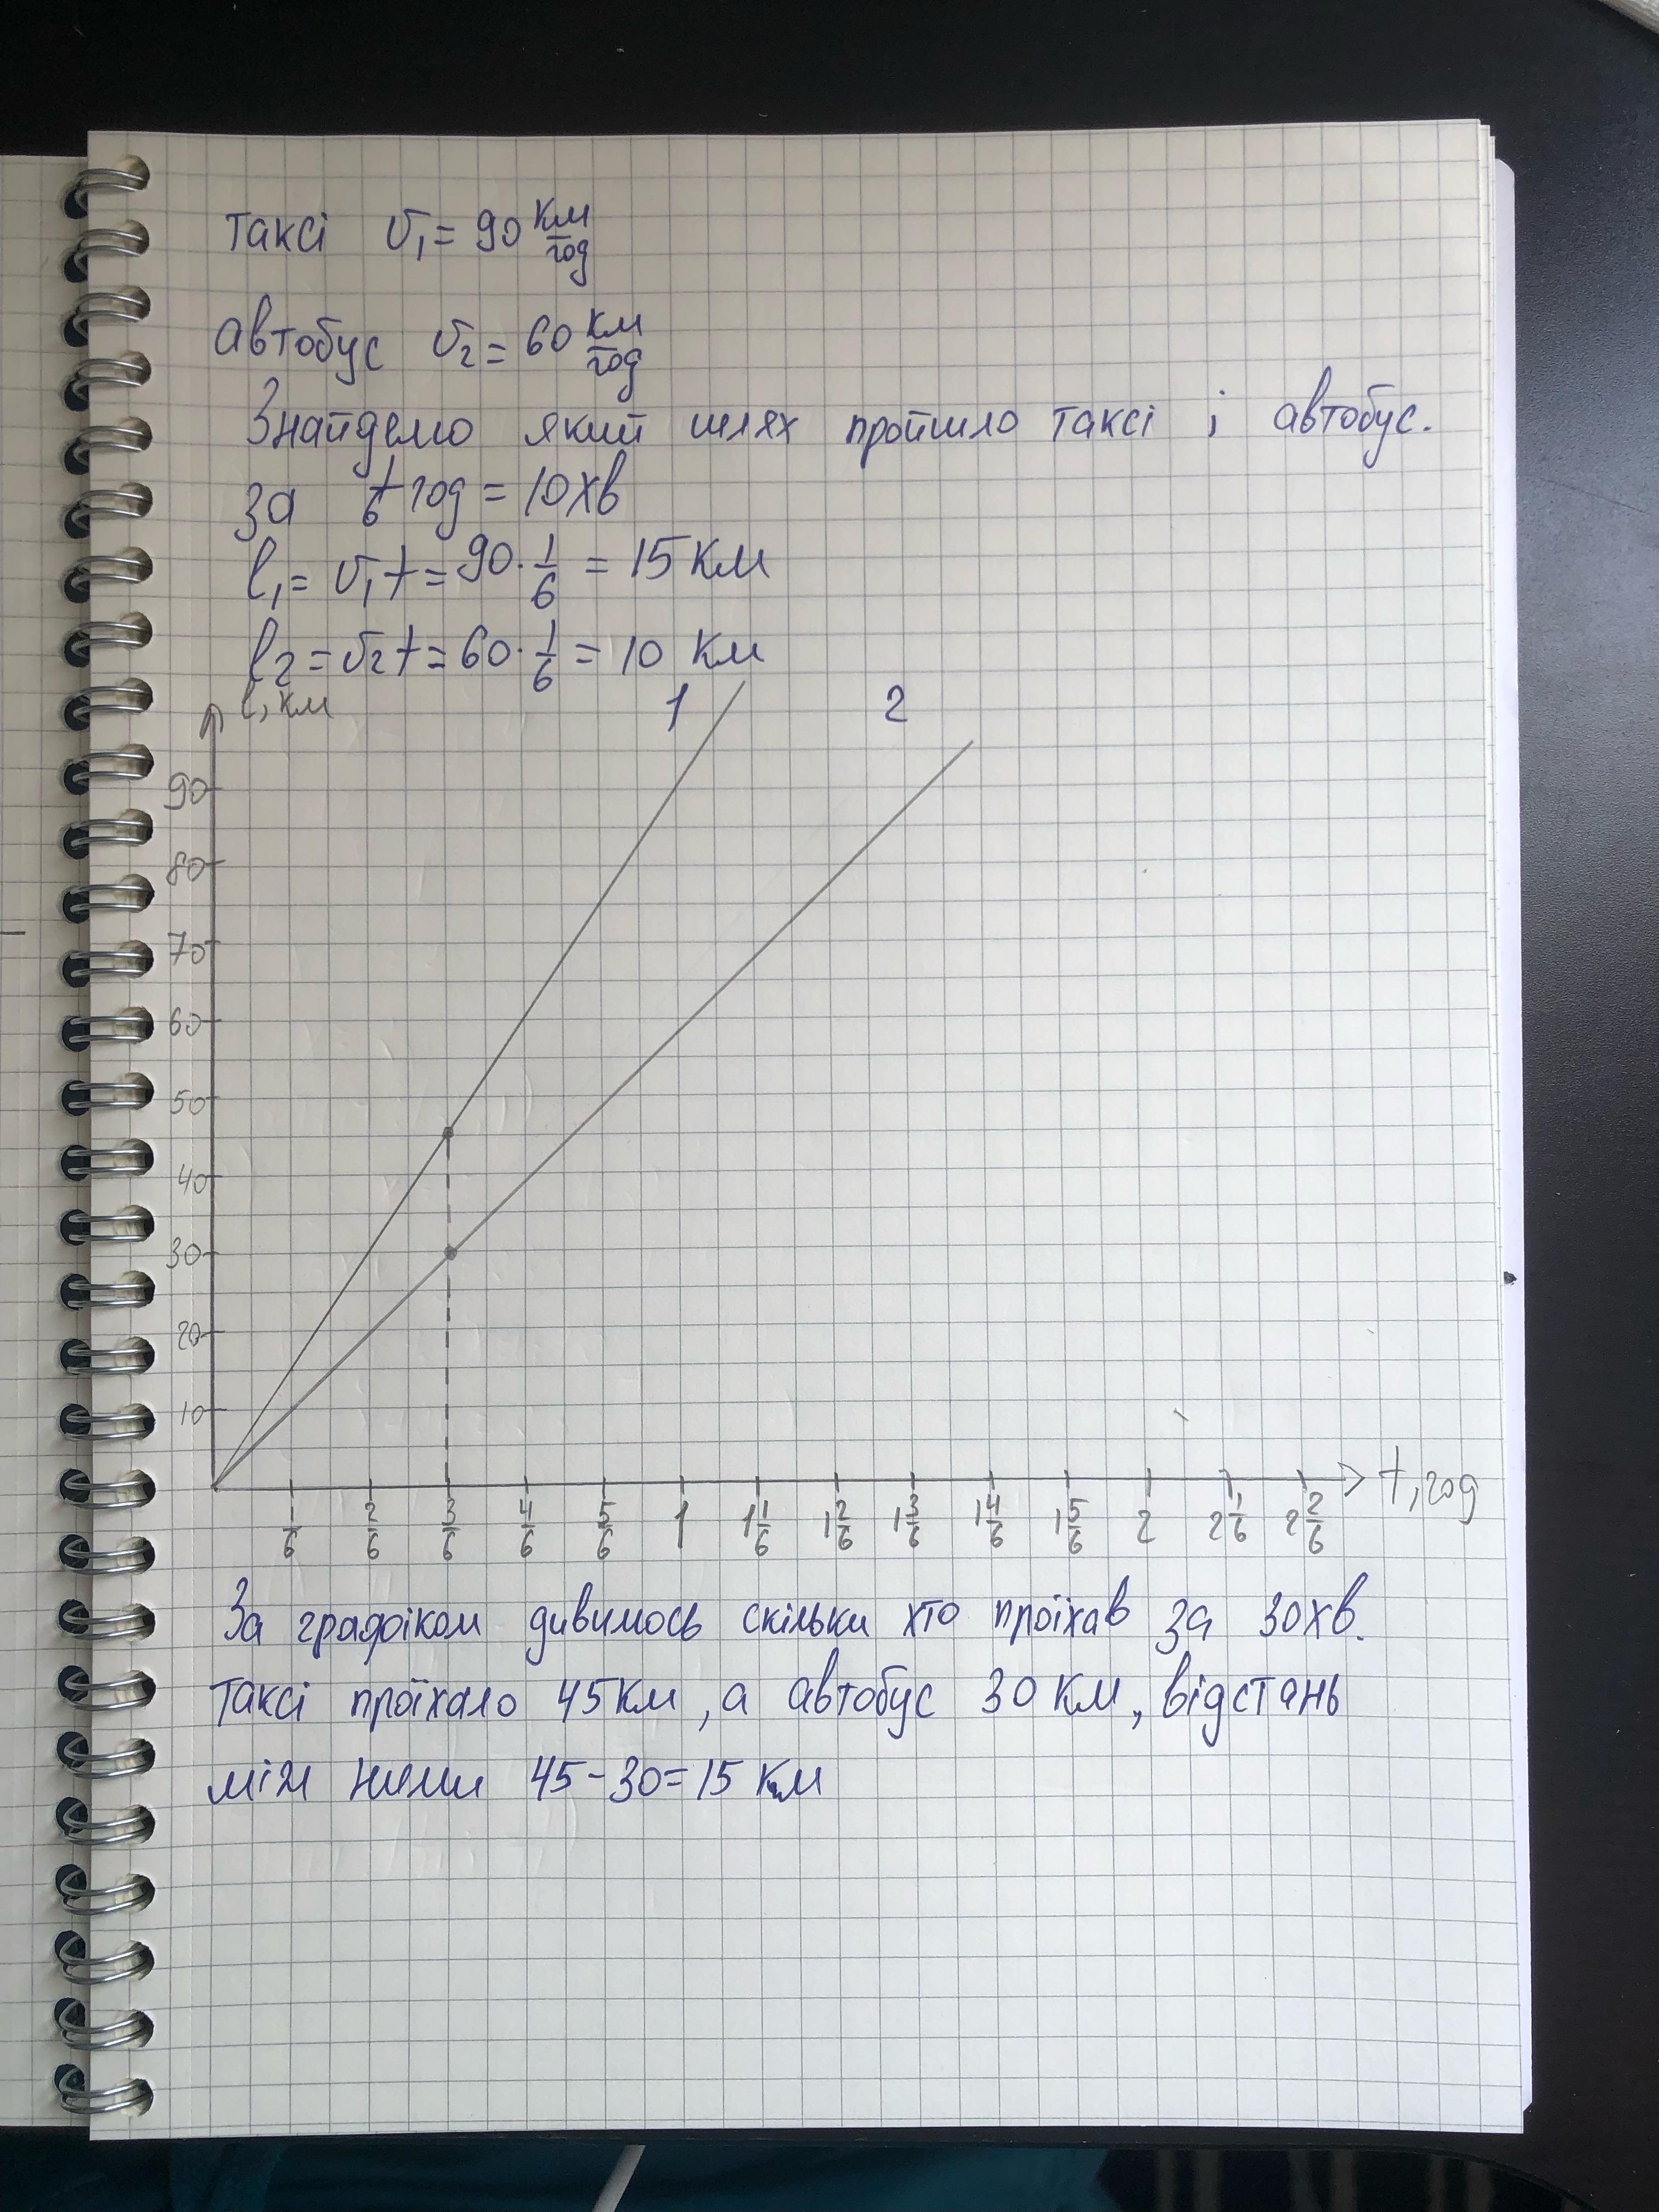 таксі υ₁ = 90 км/год
автобус υ₂ = 60 км/год
Знайдемо який шлях пройшло таксі і автобус.
за 1/6 год = 10 хв
l₁ = υ₁t = 90 · 1/6 = 15 км
l₂ = υ₂t = 60 · 1/6 = 10 км
l, км
1 2
90
80
70
60
50
40
30
20
10
1/6 2/6 3/6 4/6 5/6 1 1 1/6 1 2/6 1 3/6 1 4/6 1 5/6 2 2 1/6 2 2/6 t, год
За графіком дивимось скільки хто проїхав за 30хв.
Таксі проїхало 45 км, а автобус 30 км, відстань
між ними 45 - 30 = 15 км